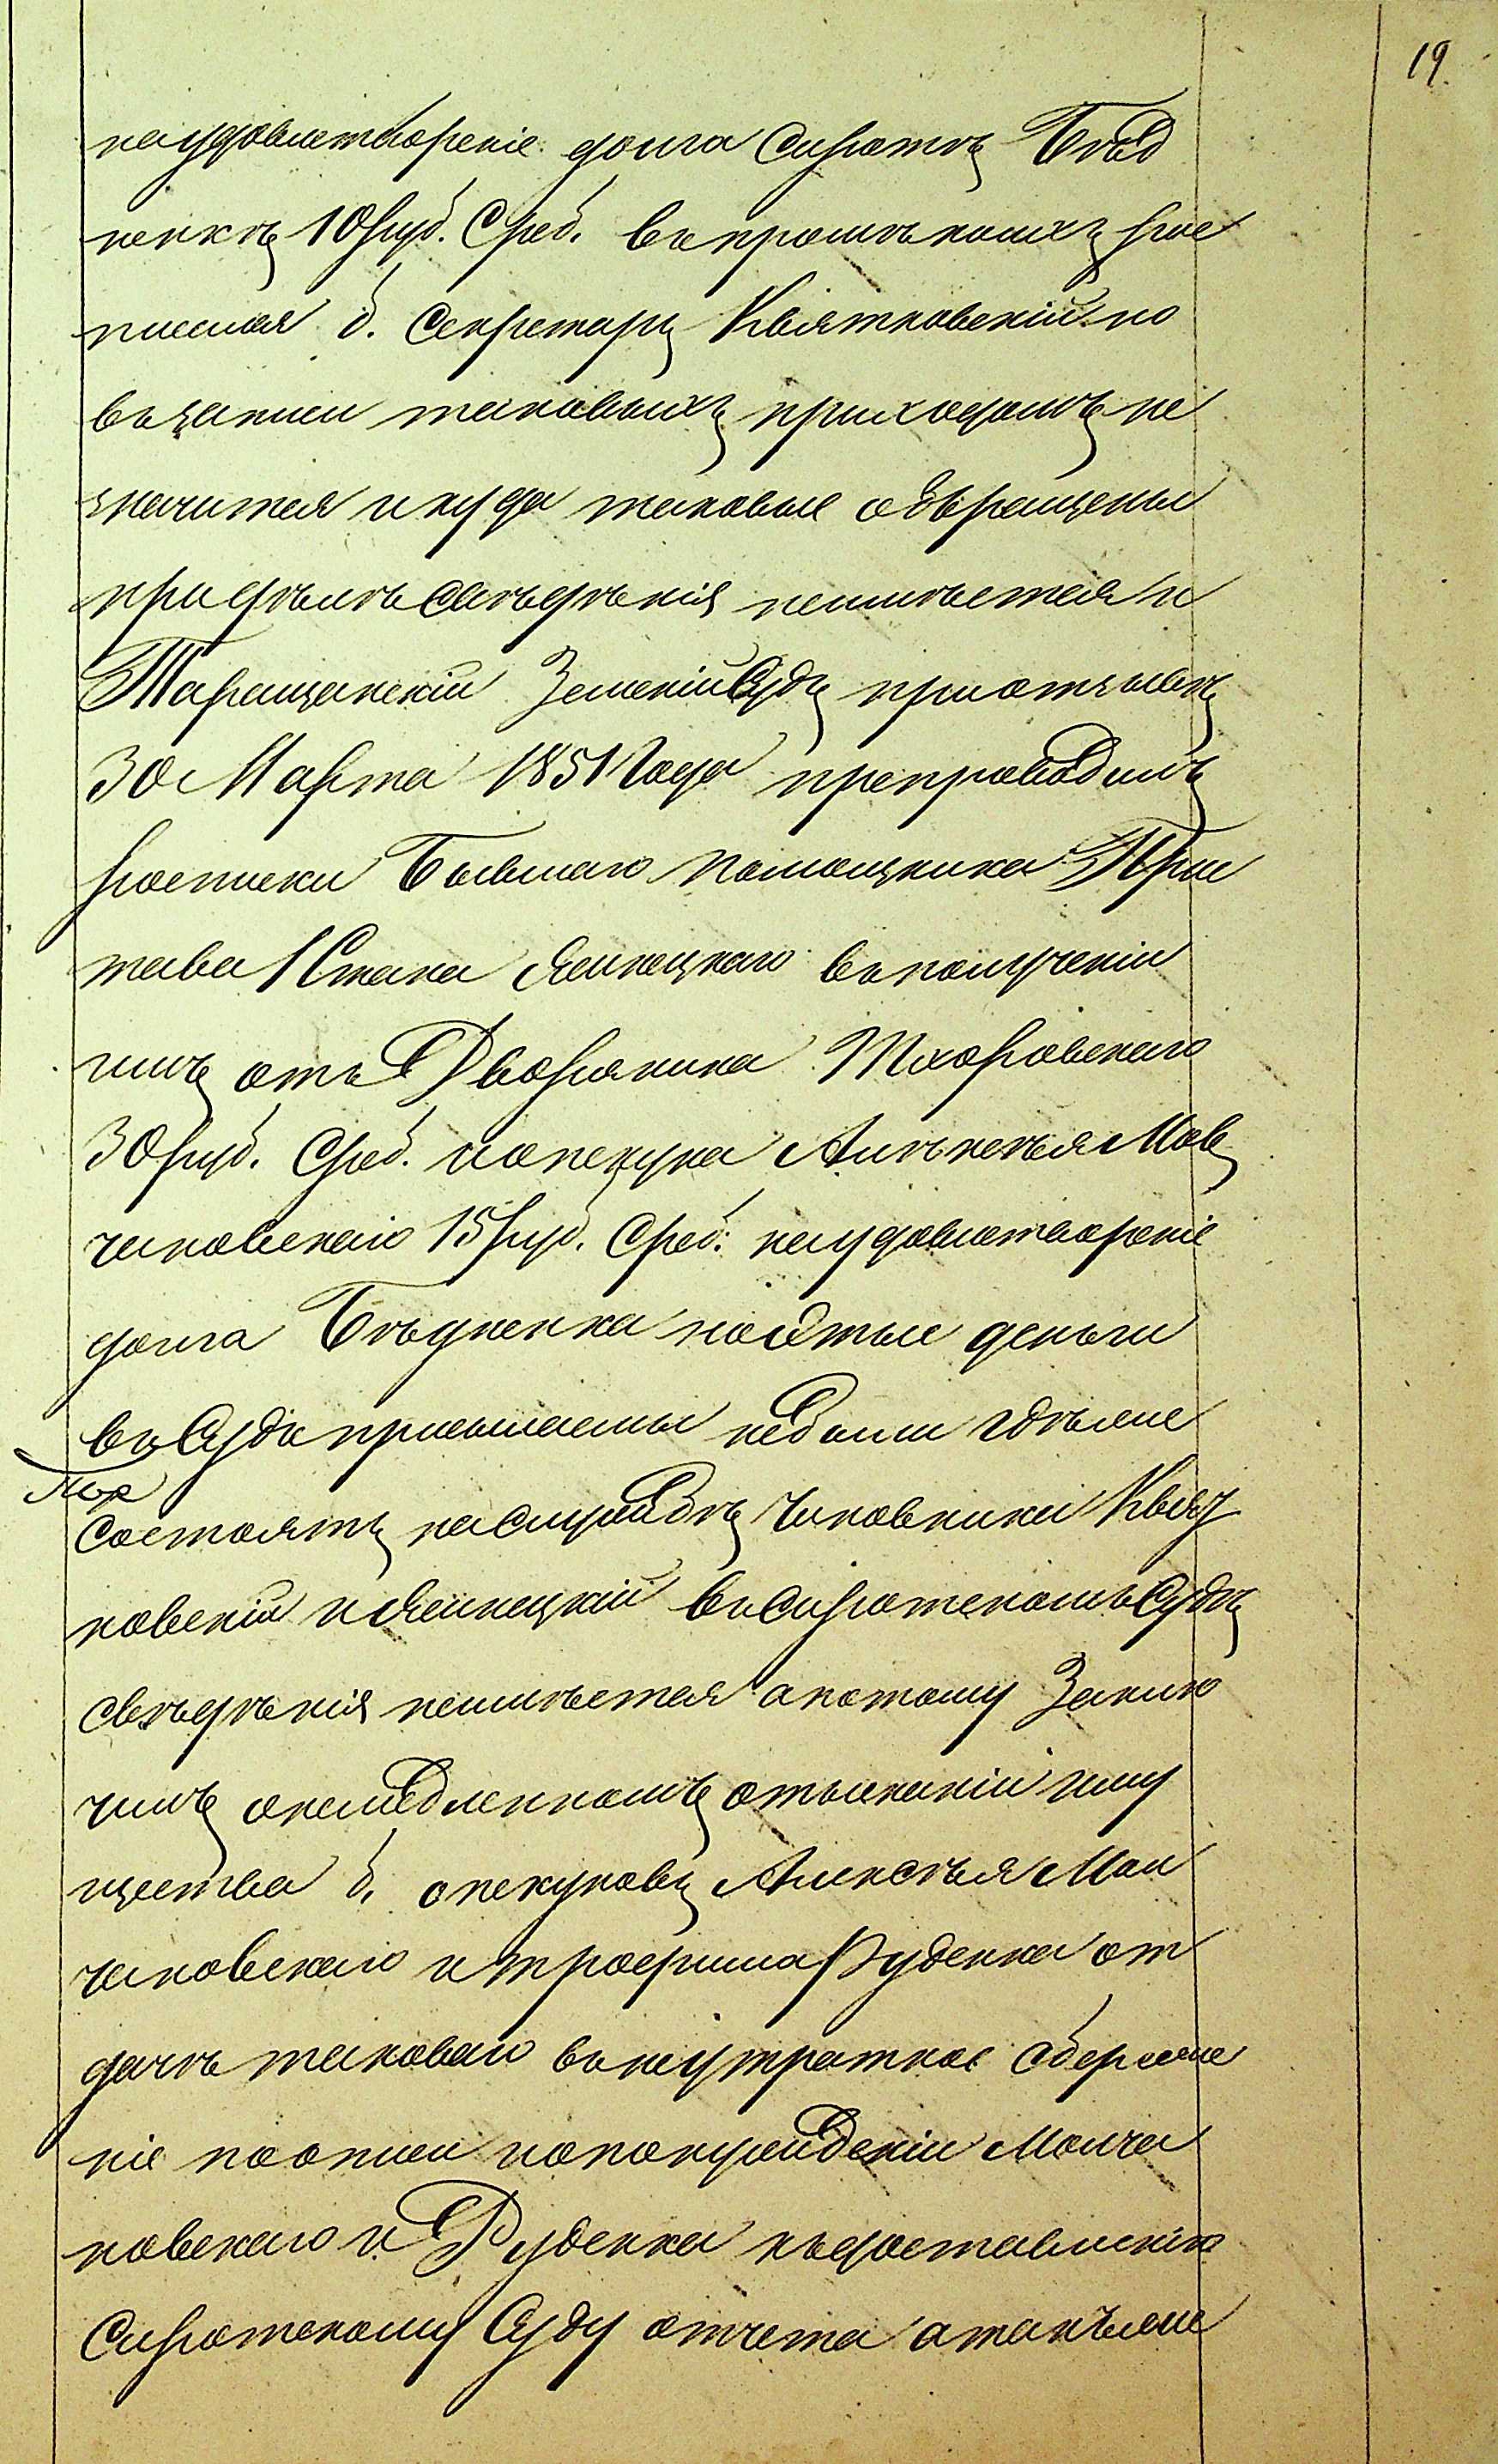 19
на удовлетвореніе долга Сиротъ Бѣд
ненкѣ 10 руб. Среб. въ прошѣнныхъ рос
писная б. Секретарь Квятковскій но
въ записи таковыхъ приходомъ не
значится и куда таковые обвращены
при дѣлѣ свѣдѣнія неимѣется и
Таращанскій Земскій Судъ при отзывѣ
30 Марта 1851 года препроводилъ
росписки Бывшаго помощника При
става 1 Стана Яснецкаго въ полученіи
имъ отъ Дворянина Тхоровскаго
30 руб. Среб. и опекуна Алѣксѣя Мов
чановскаго 15 руб. Среб. на удовлетвореніе
долга Бѣдненка но и тые деньги
въ Судъ присылаемы небыли гдѣ же
состоятъ на службѣ чиновники Квят
ковскій и Яснецкій въ Сиротскомъ Судѣ
свѣдѣнія неимѣется а потому Заклю
чилъ о немедленномъ отысканіи иму
щества б. опекуновъ Алексѣя Мол
чановскаго и Трофима Руденка от
дачѣ таковаго въ неутратное сбереже
ніе по описи и о понужденіи Молча
новскаго и Руденка къ доставленію
Сиротскому Суду отчета а также